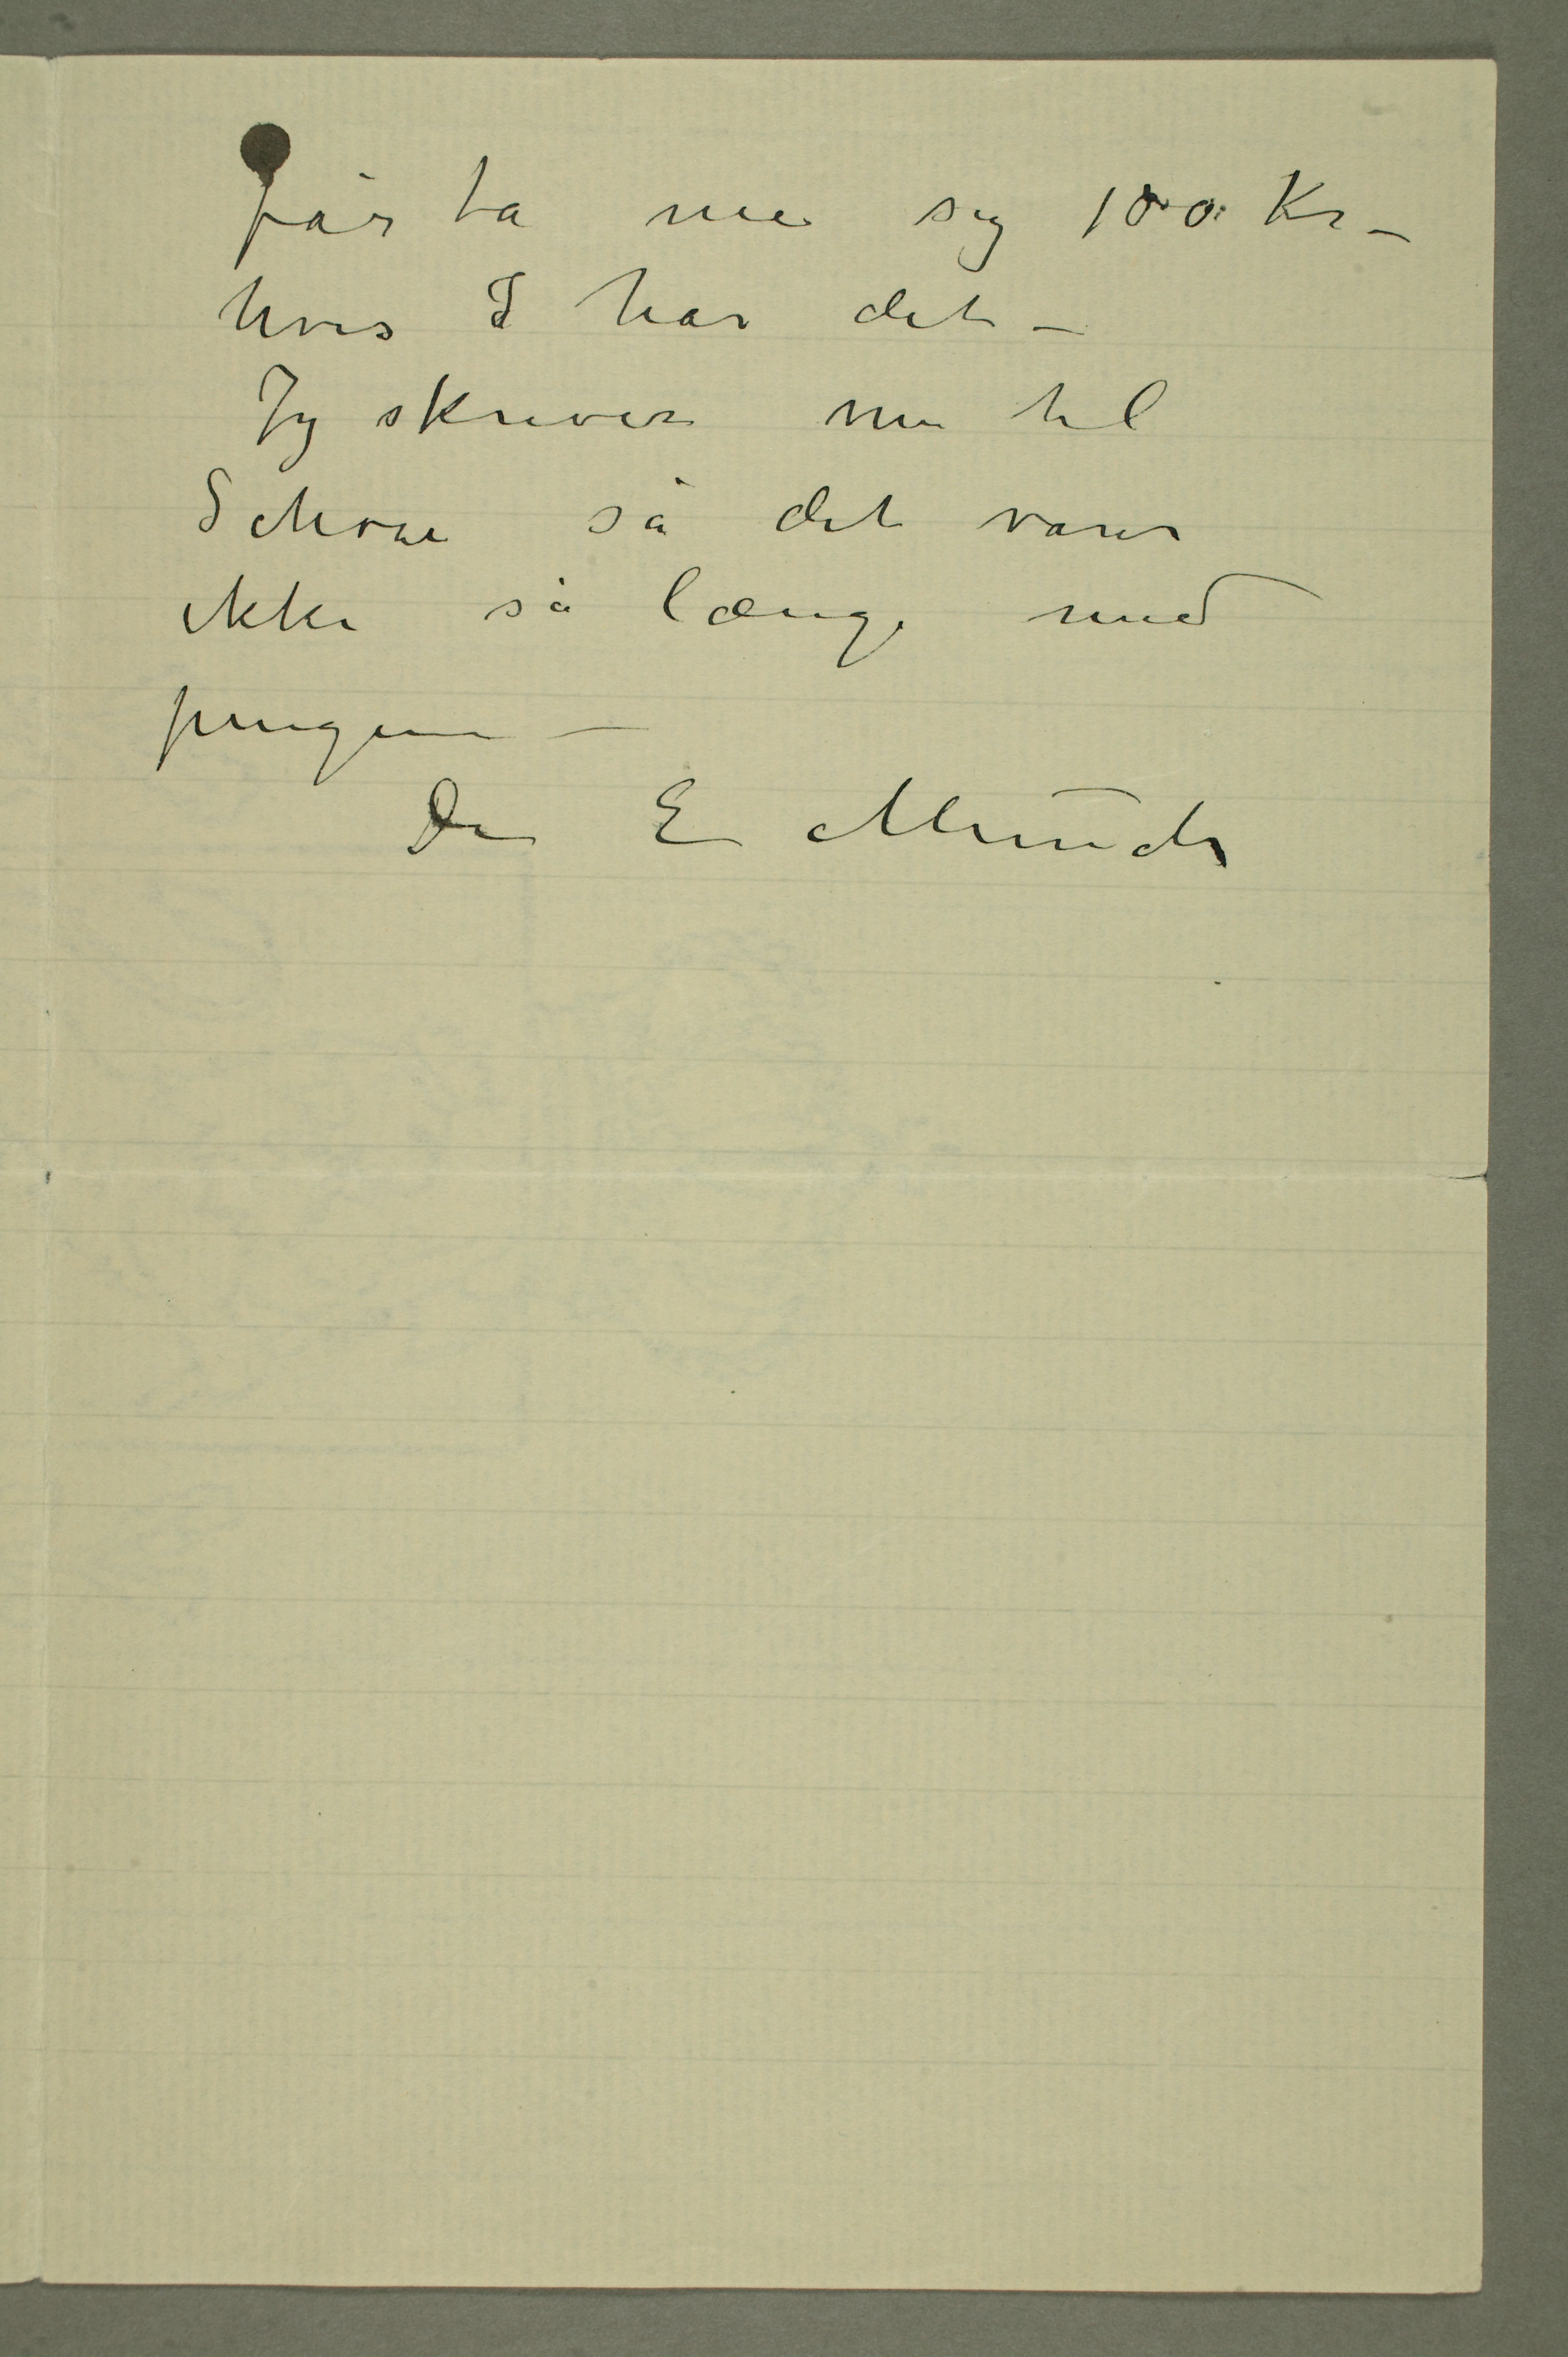 får ta me sig 100 Kr –
hvis I har det –
Jeg skriver nu til
Schou så det varer
ikke så længe med
pengene –
Din E Munch